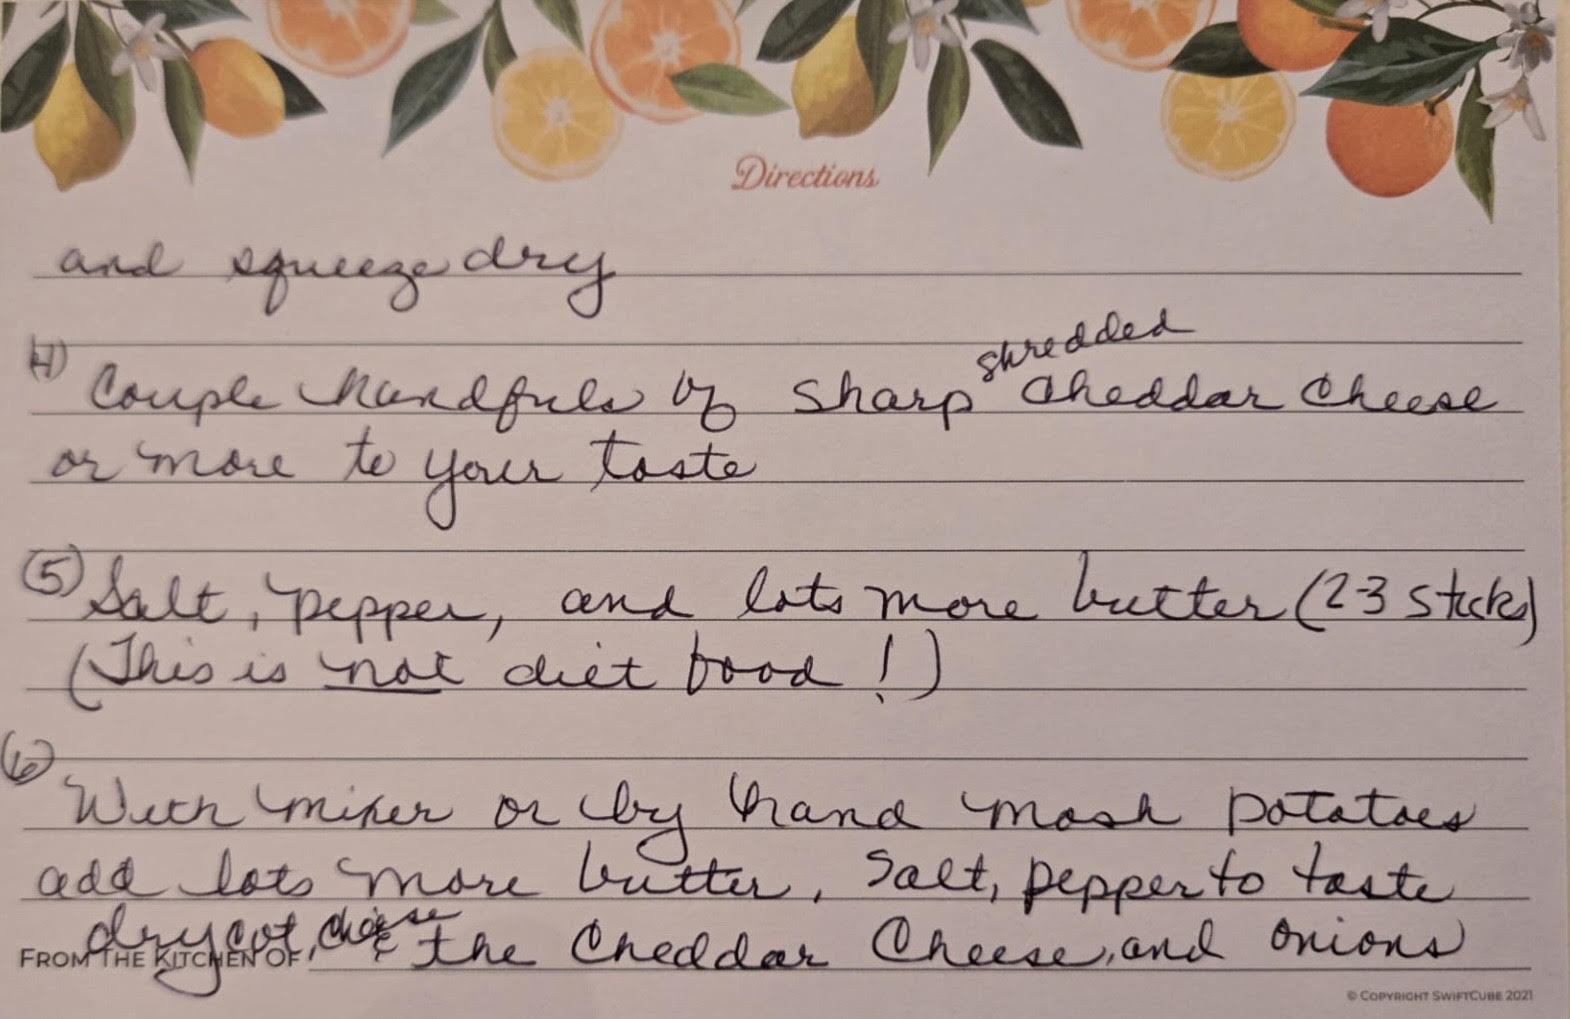 Directions
and squeeze dry
4) Couple handfuls of sharp shredded Cheddar Cheese
or more to your taste
(5) Salt, pepper, and lots more butter (2-3 sticks)
(This is not diet food!)
(6) With mixer or by hand mash potatoes
add lots more butter, salt, pepper to taste
dry cot. cheese & the Cheddar Cheese, and onions
FROM THE KITCHEN OF
© COPYRIGHT SWIFTCUBE 2021